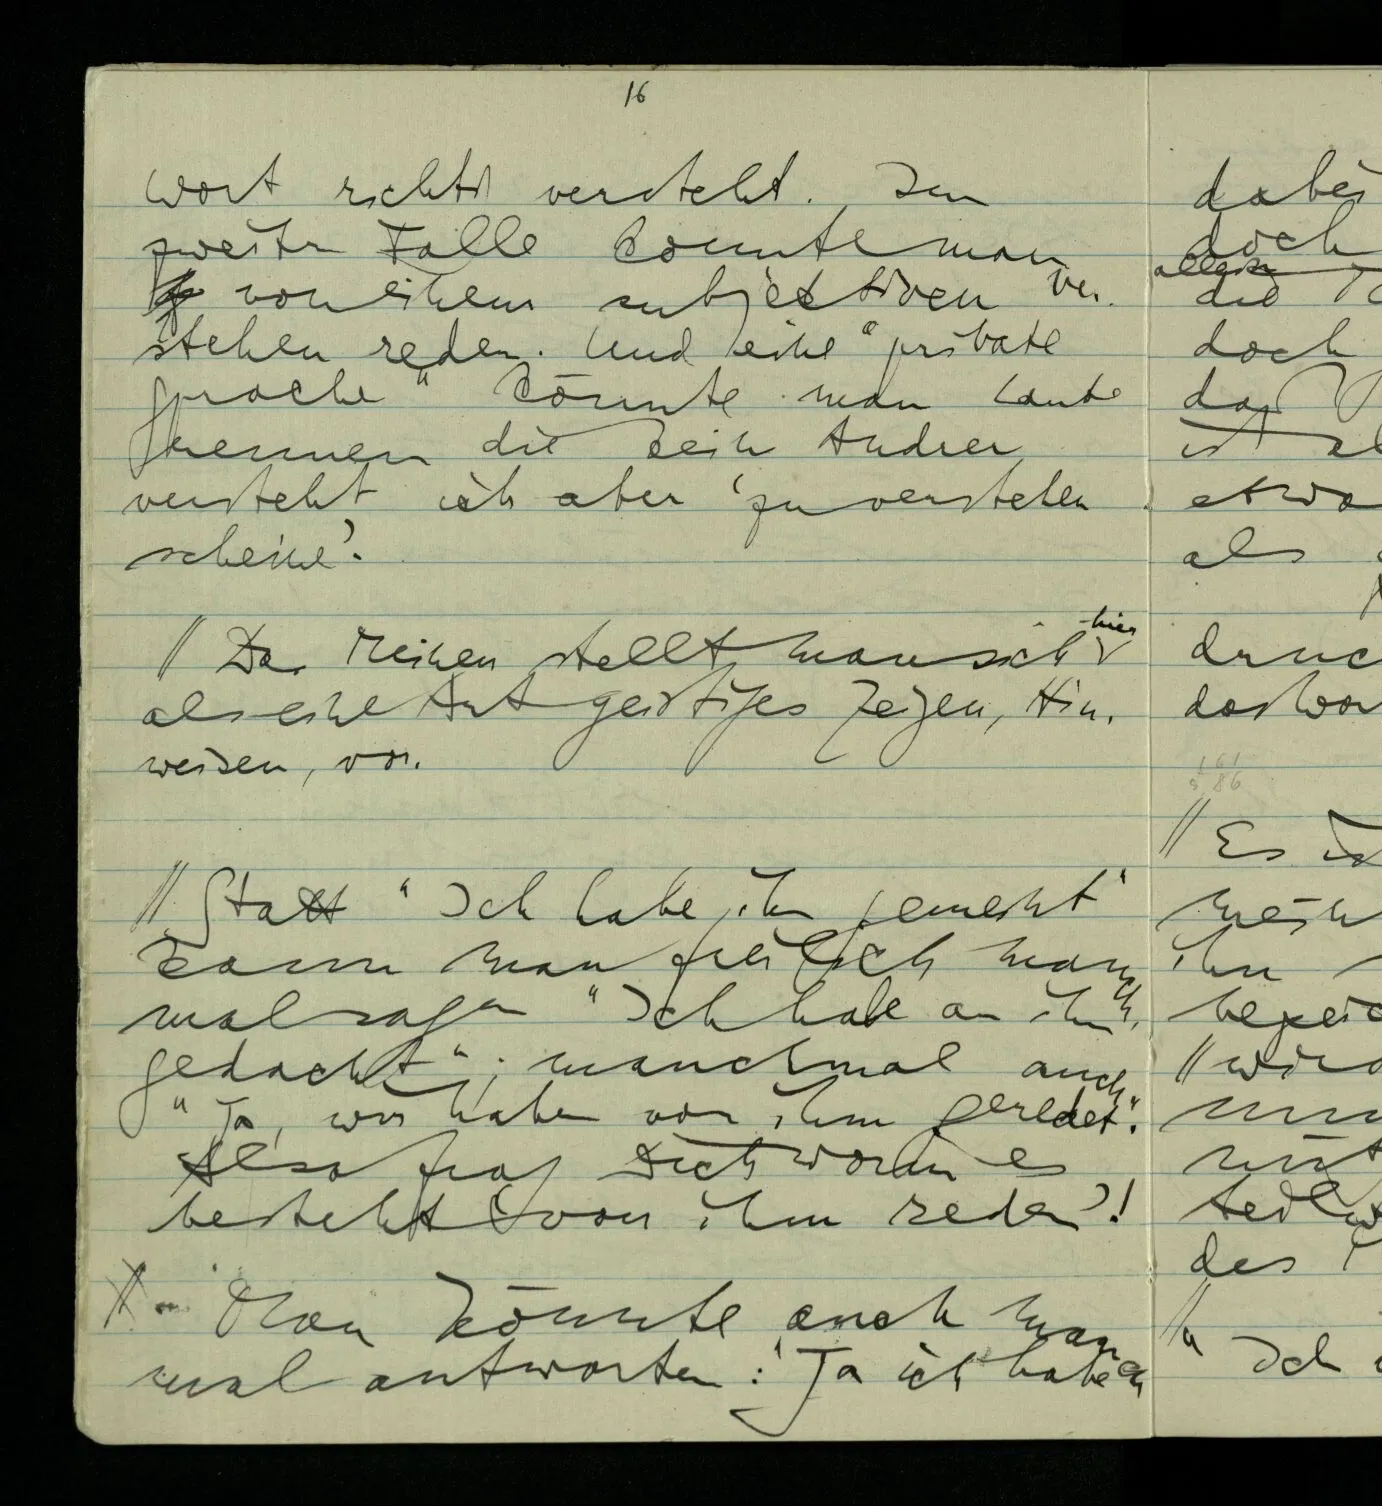 16
Wort richtig versteht. Im
zweiten Falle könnte man
von einem subjectiven Ver-
stehen reden. Und eine "private
Sprache" könnte man Laute
nennen die kein Andrer
versteht ich aber 'zu verstehen
scheine'.
// Das Meinen stellt man sich hier
als eine Art geistiges Zeigen, Hin-
weisen, vor.
// Statt "Ich habe ihn gemeint"
kann man freilich manch-
mal sagen "Ich habe an ihn
gedacht"; manchmal auch
"Ja, wir haben von ihm geredet".
Also frag Dich worin es
besteht 'von ihm reden'!
Man könnte auch manch
mal antworten: "Ja ich habe
dabei
doch
allein
die
doch
das
ist
etwa
als
druc
das Wor
161
86
// Es ist
mein
ihn
bezeic
// wird
mit
teil
des
// "Ich